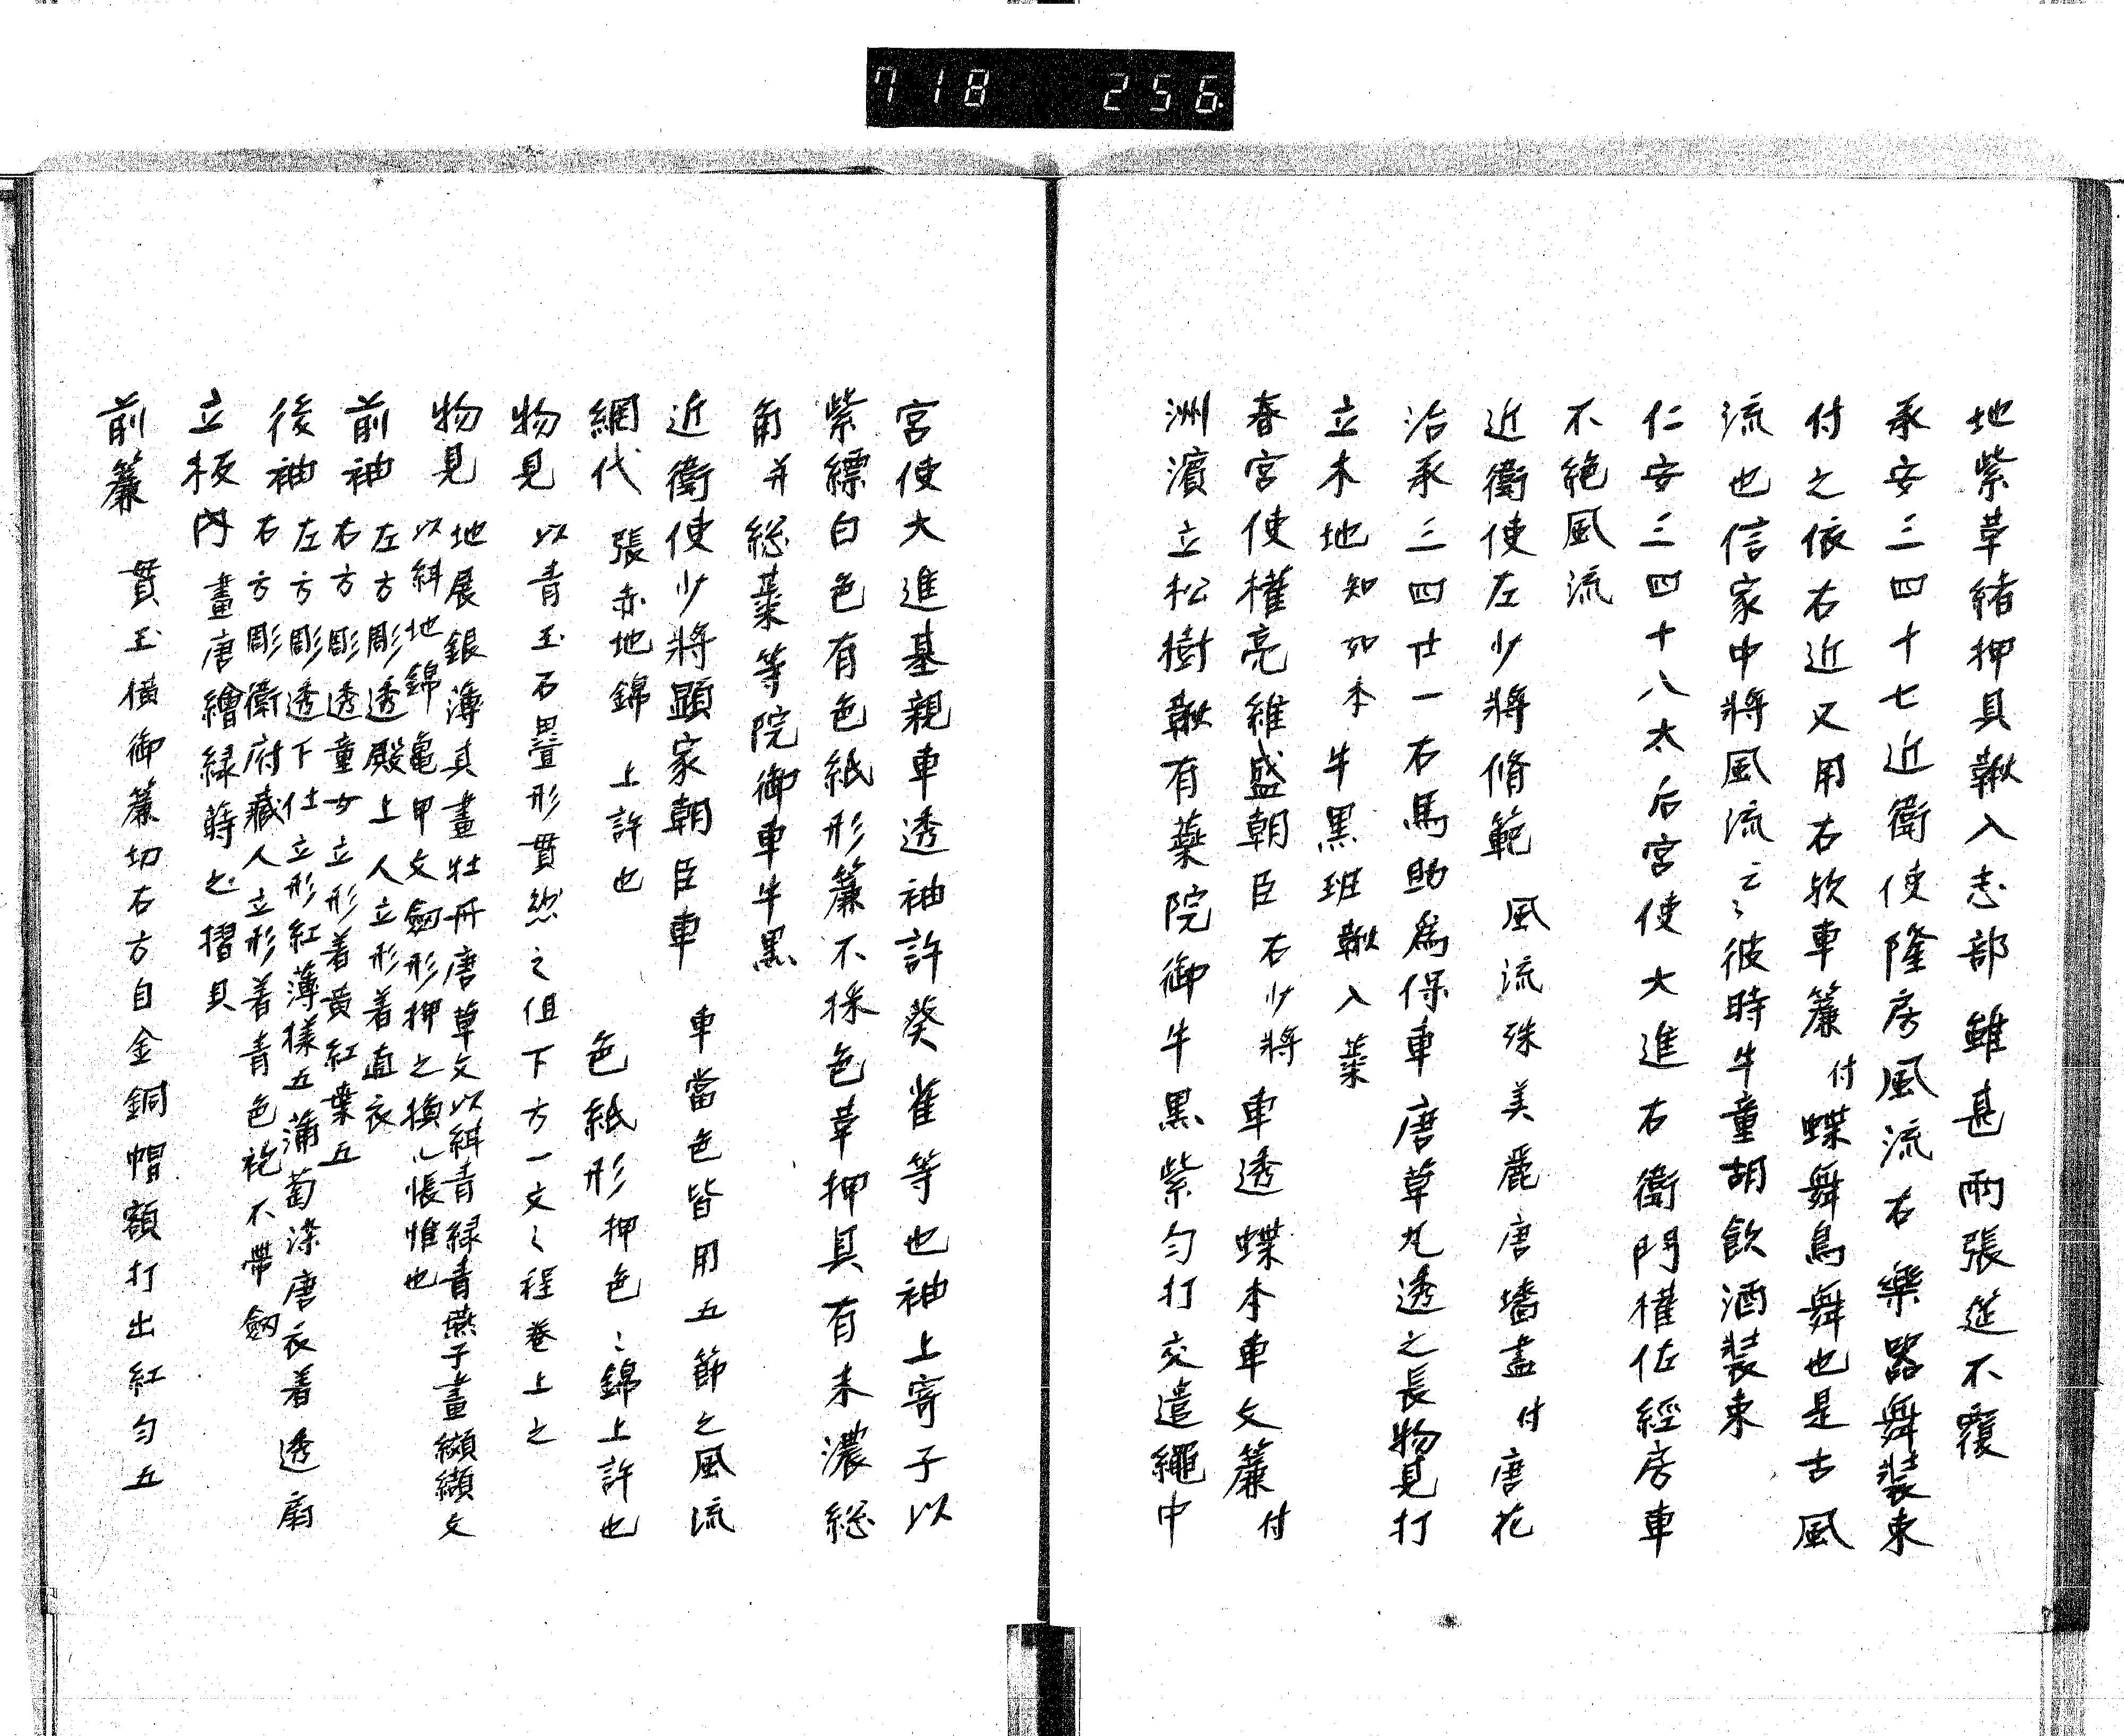 718 256
地紫革緒押具鞦入志部雖甚雨張筵不覆
承安三四十七近衛使隆房風流右樂器舞装束
付之依右近又用右欤車簾付蝶舞鳥舞也是古風
流也信家中將風流云々彼時牛童胡飲酒装束
仁安三四十八太后宮使大進右衛門權佐經房車
不絶風流
近衛使左少將脩範 風流殊美麗唐墻畫付唐花
治承三四廿一右馬助為保車唐草丸透之長物見打
立木地知如本 牛黒班鞦入蘂
春宮使權亮維盛朝臣右少將車透蝶本車文簾付
洲濱立松樹鞦有藥院御牛黒紫匀打交遣繩中
宮使大進基親車透袖許葵雀等也袖上寄子以
紫縹白色有色紙形簾不採色革押具有末濃総
角并総蘂等院御車牛黒
近衛使少將顯家朝臣車 車當色皆用五節之風流
網代 張赤地錦 上許也 色紙形押色々錦上許也
物見 以青玉石疊形貫懸之但下方一丈々程巻上之
物見 地展銀薄其畫牡丹唐草文以紺青緑青燕子畫纐纈文
以斜地錦亀甲文劔形押之換几帳惟也
前袖 左方彫透殿上人立形着直衣
右方彫透童女立形着黄紅葉五
後袖 左方彫透下仕立形紅薄樣五蒲萄染唐衣着透扇
右方彫衛府藏人立形着青色袍不帶劔
立板内 畫唐繪緑蒔之摺貝
前簾 貫玉僙御簾切右方自金銅帽額打出紅匀五